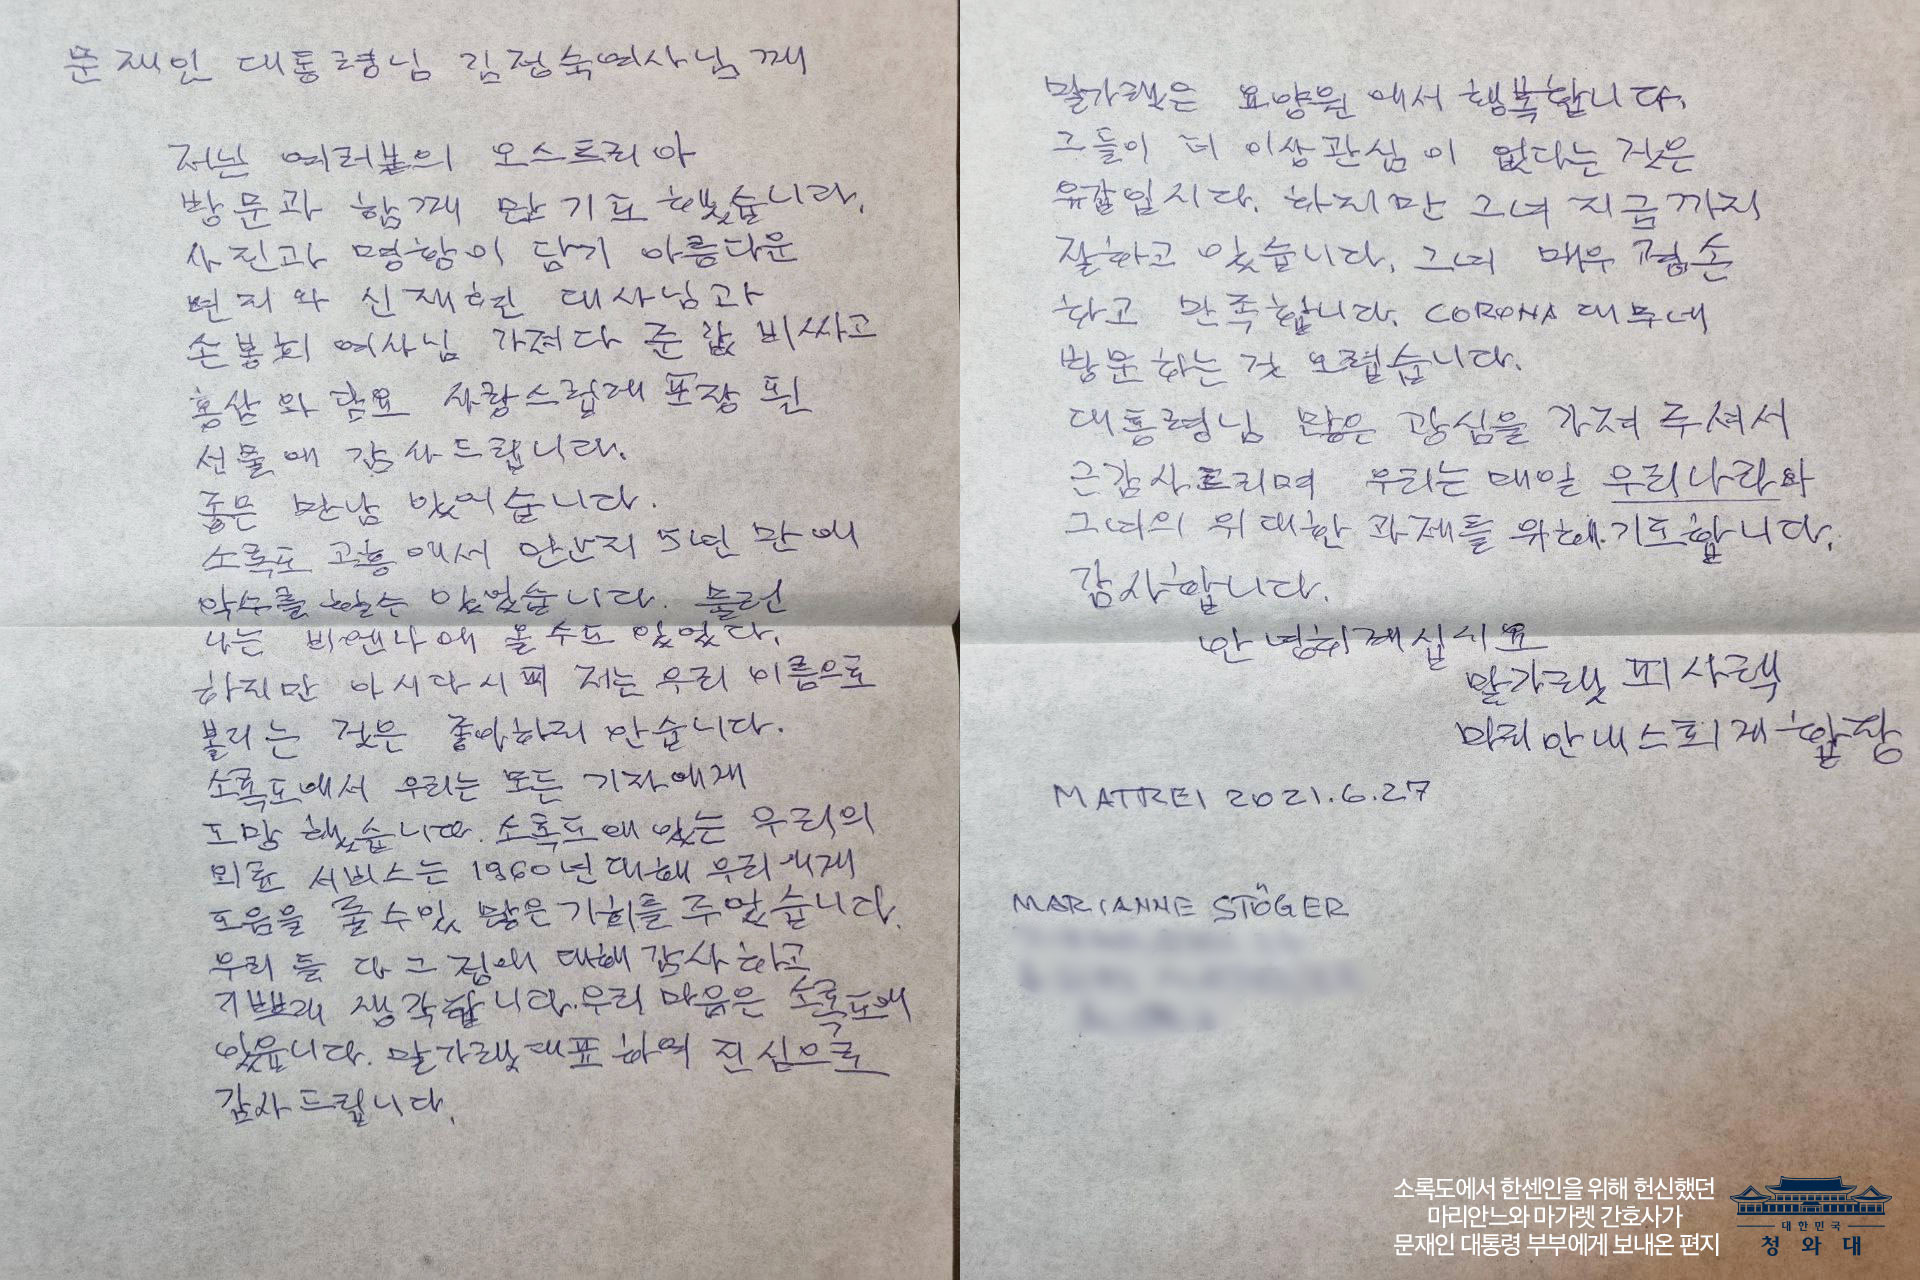 문재인 대통령님 김정숙여사님께
저는 여러분의 오스트리아
방문과 함께 많 기도 했습니다.
사진과 명함이 담기 아름다운
편지와 신재현 대사님과
손봉희 여사님 가져다 준 값 비싸고
홍삼와 담요 사랑스럽게 포장 된
선물에 감사드립니다.
좋은 만남 있어습니다.
소록도 고흥에서 만난지 5년 만에
악수를 할수 있었습니다. 물런
나는 비엔나에 올수도 있었다.
하지만 아시다시피 저는 우리 이름으로
불리는 것은 좋아하지 안습니다.
소록도에서 우리는 모든 기자에게
도망 했습니다. 소록도에 있는 우리의
의료 서비스는 1960년대해 우리에게
도움을 줄수있 많은 기회를 주었습니다.
우리 둘 다 그 점에 대해 감사하고
기쁘게 생각합니다. 우리 마음은 소록도에
있읍니다. 말가렛대표하여 진심으로
감사드립니다.
말가렛은 요양원에서 행복합니다.
그들이 더 이상 관심이 없다는 것은
유감입시다. 하지만 그녀 지금까지
잘하고 있습니다. 그녀 매우 겸손
하고 만족합니다. CORONA 대무네
방문하는 것 오렵습니다.
대통령님 많은 광심을 가져 주셔서
큰감사드리며 우리는 매일 우리나라와
그녀의 위대한 과제를 위해.기도합니다.
감사합니다.
안녕히계십시요
말가렛 피사렉
마리안내스퇴게 합장
MATREI 2021.6.27
MARIANNE STÖGER
소록도에서 한센인을 위해 헌신했던
마리안느와 마가렛 간호사가
문재인 대통령 부부에게 보내온 편지
대한민국
청와대